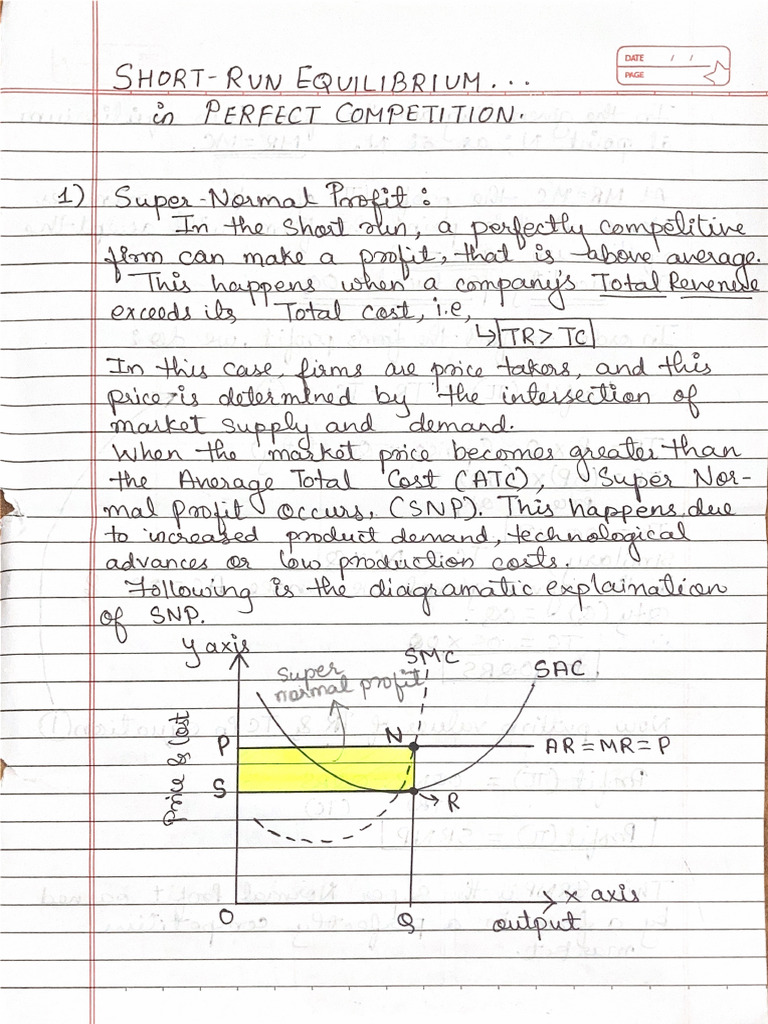 DATE / /
PAGE
SHORT-RUN EQUILIBRIUM...
in PERFECT COMPETITION.
1) Super-Normal Profit:
In the short run, a perfectly competitive
firm can make a profit, that is above average.
This happens when a company's Total Revenue
exceeds its Total cost, i.e,
↳ TR > TC
In this case, firms are price takers, and this
price is determined by the intersection of
market supply and demand.
When the market price becomes greater than
the Average Total Cost (ATC), Super Nor-
mal profit occurs, (SNP). This happens due
to increased product demand, technological
advances or low production costs.
Following is the diagramatic explaination
of SNP.
y axis
SMC
Super
normal profit
SAC
Price & Cost
P
N
AR = MR = P
S
R
O
Q
x axis
output